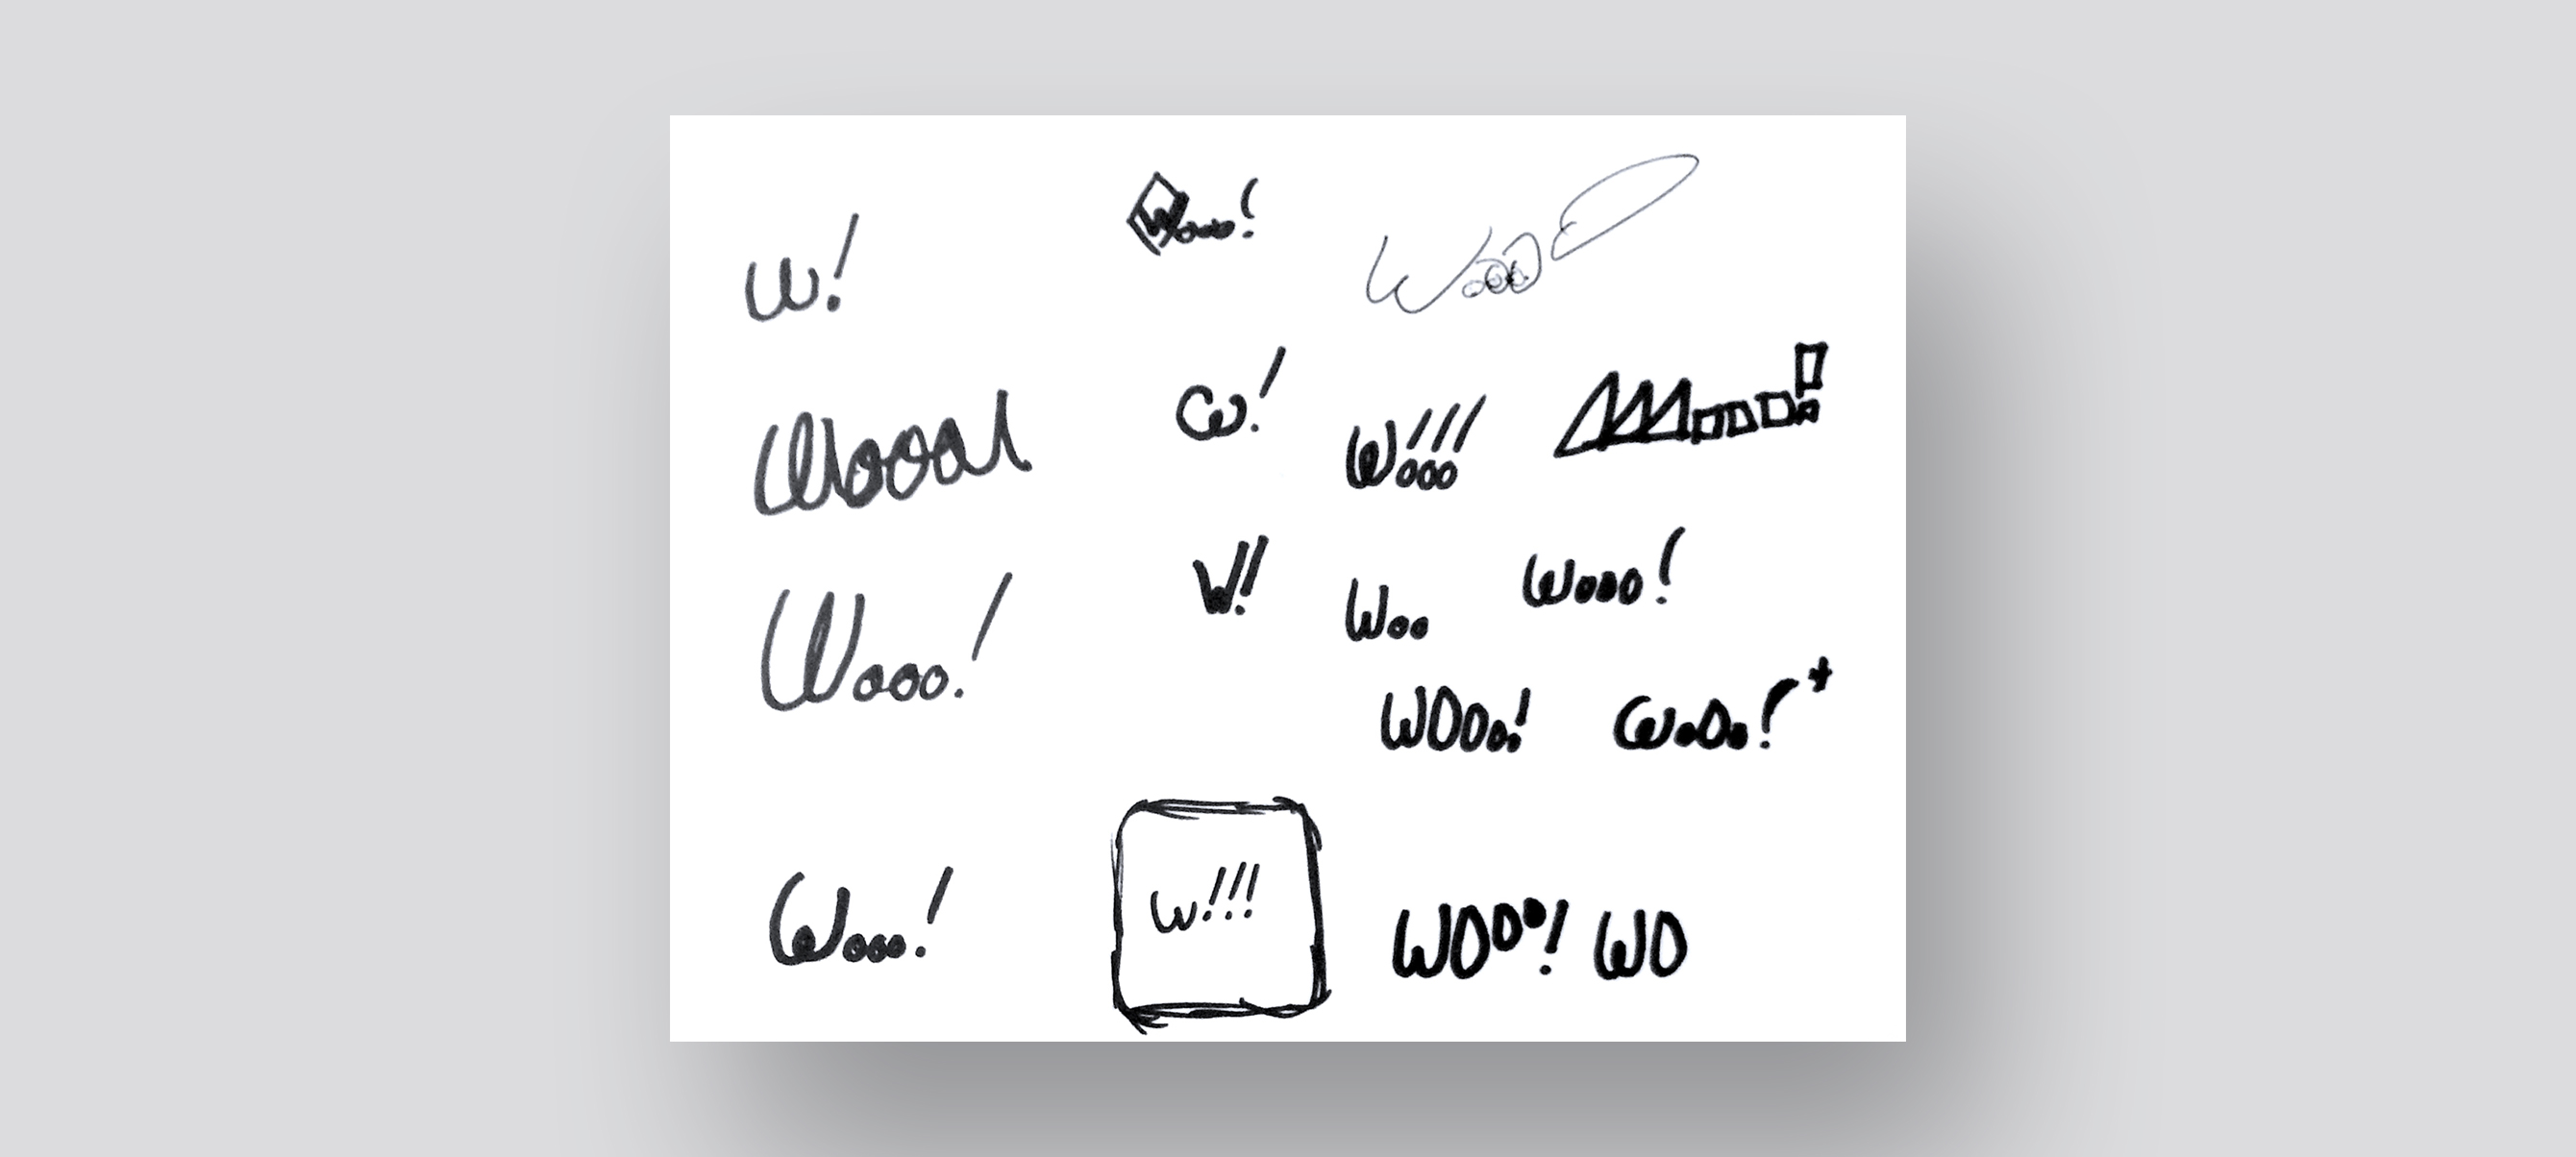 W!
Wooo!
Wooo!
W!
Wooo!
W!!!
ooo
Wooo!
W!!
Woo
Wooo!
Wooo!
WOOo!
WoOo!*
Wooo!
W!!!
WOOo! WO